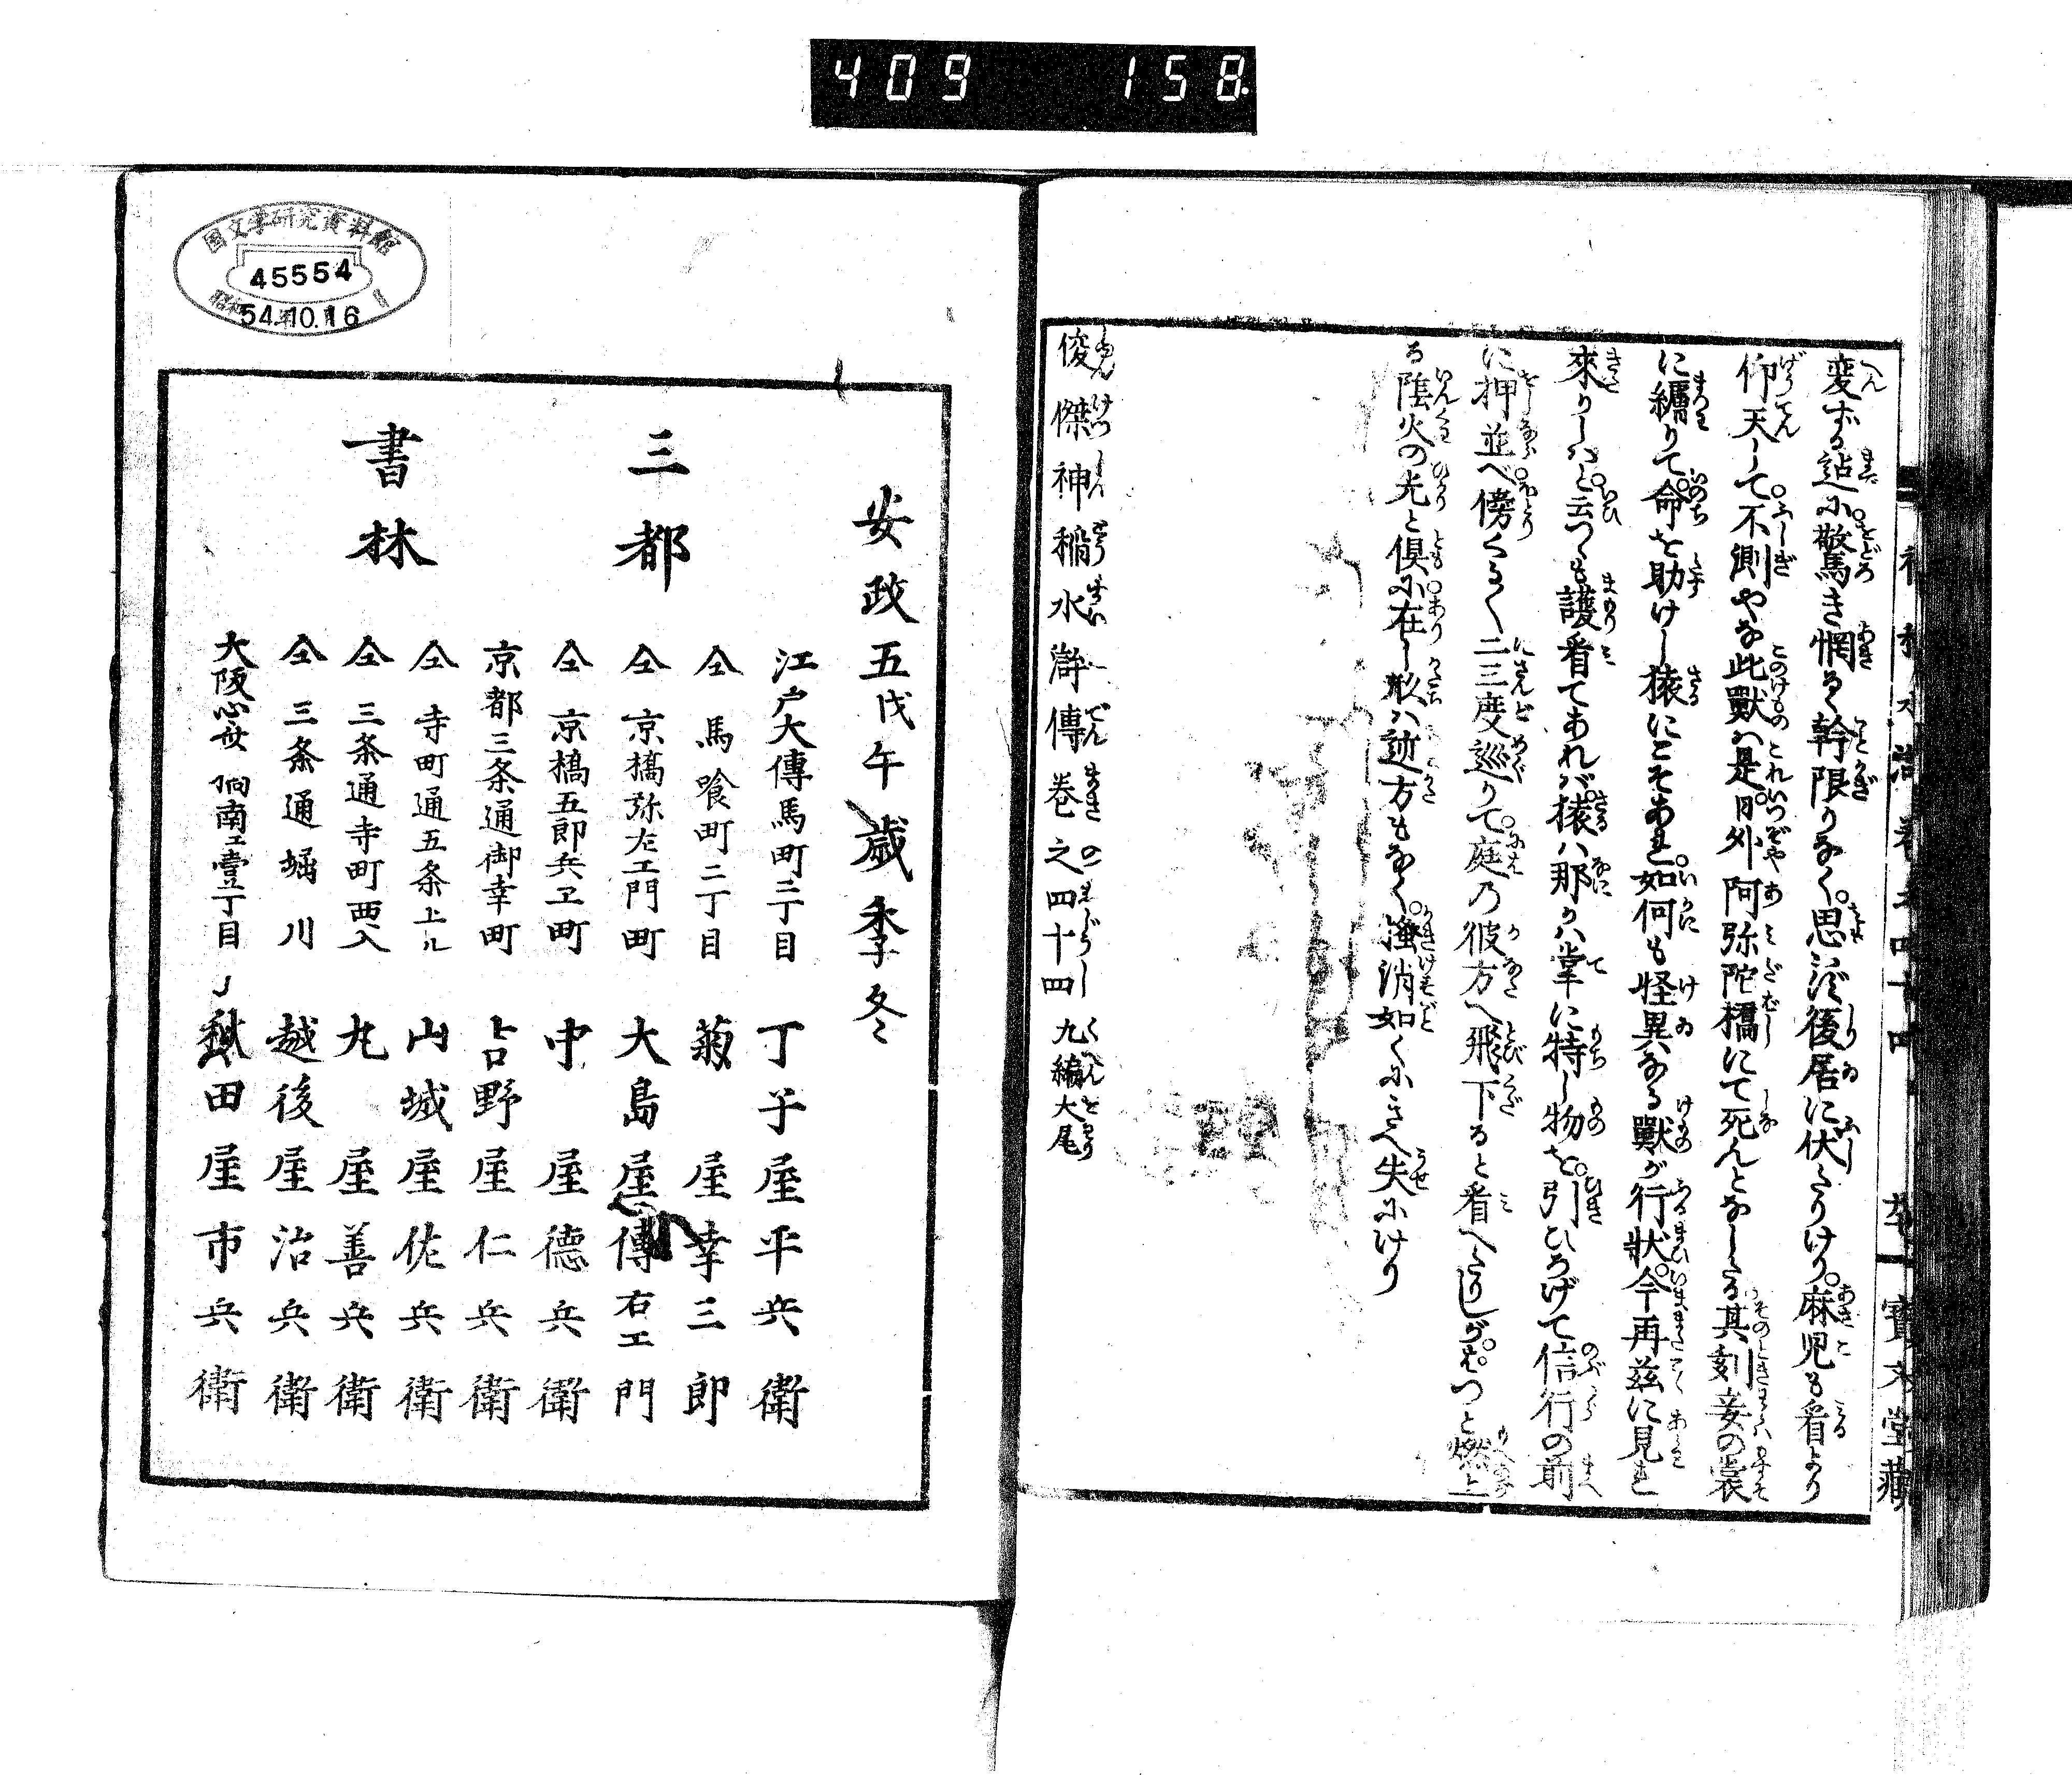 409 158
変ずる迠に驚き惘るゝ斡限りなく。思はず後居に伏たりけり。麻児も看より
仰天して。不測やな此獣は是。日外阿弥陀橋にて死んとなしたる其刻妾の裳
に纒りて。命を助けし猿にこそあれ。如何も怪異なる獣が行状。今再茲に見れ
来りしはと。云つゝも護看てあれば。猿は那が掌に特し物を。引ひろげて信行の前
に押並べ。傍くるく二三度巡りて。庭の彼方へ飛下ると看へたりしが。ぱつと燃上
る陰火の光と倶に。在し形は迯方もなく。滅消如くにきへ失にけり
俊傑神稲水滸傳巻之四十四 九編大尾
寳文堂蔵
国文学研究資料館
45554
昭和 54.10.16
安政五戊午歳季冬
三都
書林
江戸大傳馬町二丁目 丁子屋平兵衛
仝 馬喰町二丁目 菊屋幸三郎
仝 京橋弥左エ門町 大島屋傳右エ門
仝 京橋五郎兵ヱ町 中屋徳兵衛
京都三条通御幸町 吉野屋仁兵衛
仝 寺町通五条上ル 山城屋佐兵衛
仝 三条通寺町西入 丸屋善兵衛
仝 三条通堀川 越後屋治兵衛
大阪心斎 南エ壹丁目 秋田屋市兵衛